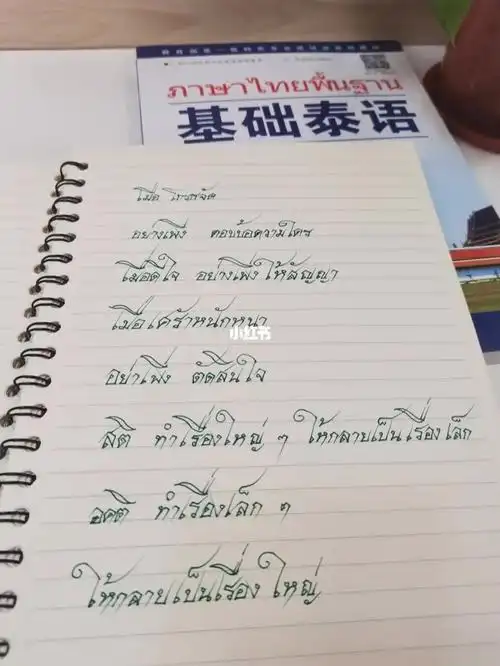 ภาษาไทยพื้นฐาน
基础泰语
เมื่อ โกรธจัด
อย่างเพิ่ง ตอบข้อความใคร
เมื่อดีใจ อย่างเพิ่งให้สัญญา
เมื่อเศร้าหนักหนา
小红书
อย่าเพิ่ง ตัดสินใจ
สติ ทำเรื่องใหญ่ ๆ ให้กลายเป็นเรื่องเล็ก
อคติ ทำเรื่องเล็ก ๆ
ให้กลายเป็นเรื่อง ใหญ่